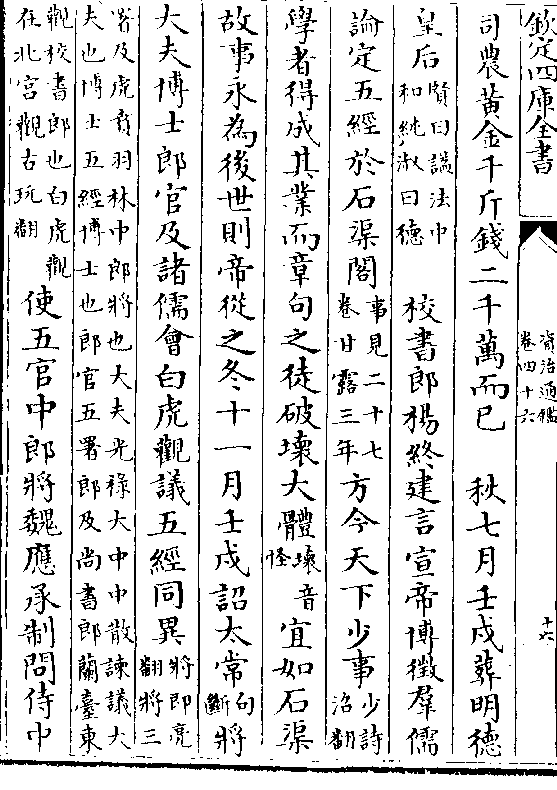 欽定四庫全書
資治通鑑
卷四十六
十六
司農黃金千斤錢二千萬而已 秋七月壬戌葬明德
皇后賢曰諡法中和純淑曰德 校書郎楊終建言宣帝博徵羣儒
論定五經於石渠閣事見二十七卷甘露三年方今天下少事少詩沼翻
學者得成其業而章句之徒破壞大體壞音怪宜如石渠
故事永為後世則帝從之冬十一月壬戌詔太常句斷將
大夫博士郎官及諸儒會白虎觀議五經同異將即亮翻將三
署及虎賁羽林中郎將也大夫光祿大中中散諫議大
夫也博士五經博士也郎官五署郎及尚書郎蘭臺東
觀校書郎也白虎觀在北宮觀古玩翻使五官中郎將魏應承制問侍中